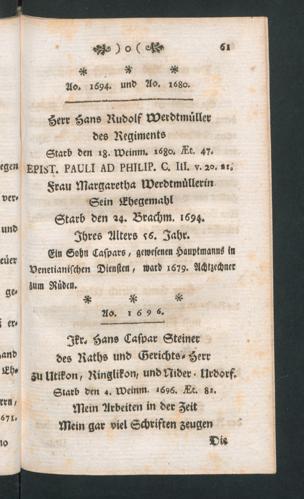 ) o ( 61
* * *
Ao. 1694. und Ao. 1680.
Herr Hans Rudolf Werdtmüller
des Regiments
Starb den 18. Weinm. 1680. Æt. 47.
EPIST. PAULI AD PHILIP. C. III. v. 20. 21.
Frau Margaretha Werdtmüllerin
Sein Ehegemahl
Starb den 24. Brachm. 1694.
Ihres Alters 56. Jahr.
Ein Sohn Caspars, gewesenen Hauptmanns in
Venetianischen Diensten, ward 1679. Achtzehner
zum Rüden.
* * *
Ao. 1696.
Jkr. Hans Caspar Steiner
des Raths und Gerichts-Herr
zu Utikon, Ringlikon, und Nider-Urdorf.
Starb den 4. Weinm. 1696. Æt. 81.
Mein Arbeiten in der Zeit
Mein gar viel Schriften zeugen
Die